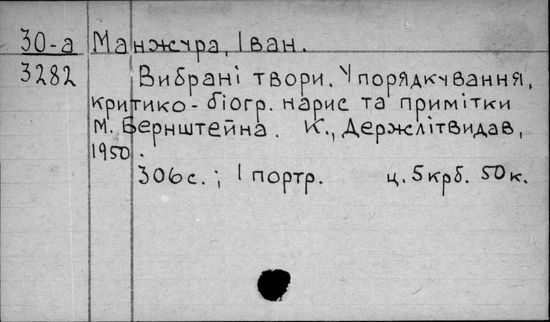 30-а Манжура, Іван.
3282 Вибрані твори. Упорядкування,
критико-біогр. нарис та примітки
М. Бернштейна. К., Держлітвидав,
1950.
306с.; 1 портр. ц. 5крб. 50к.